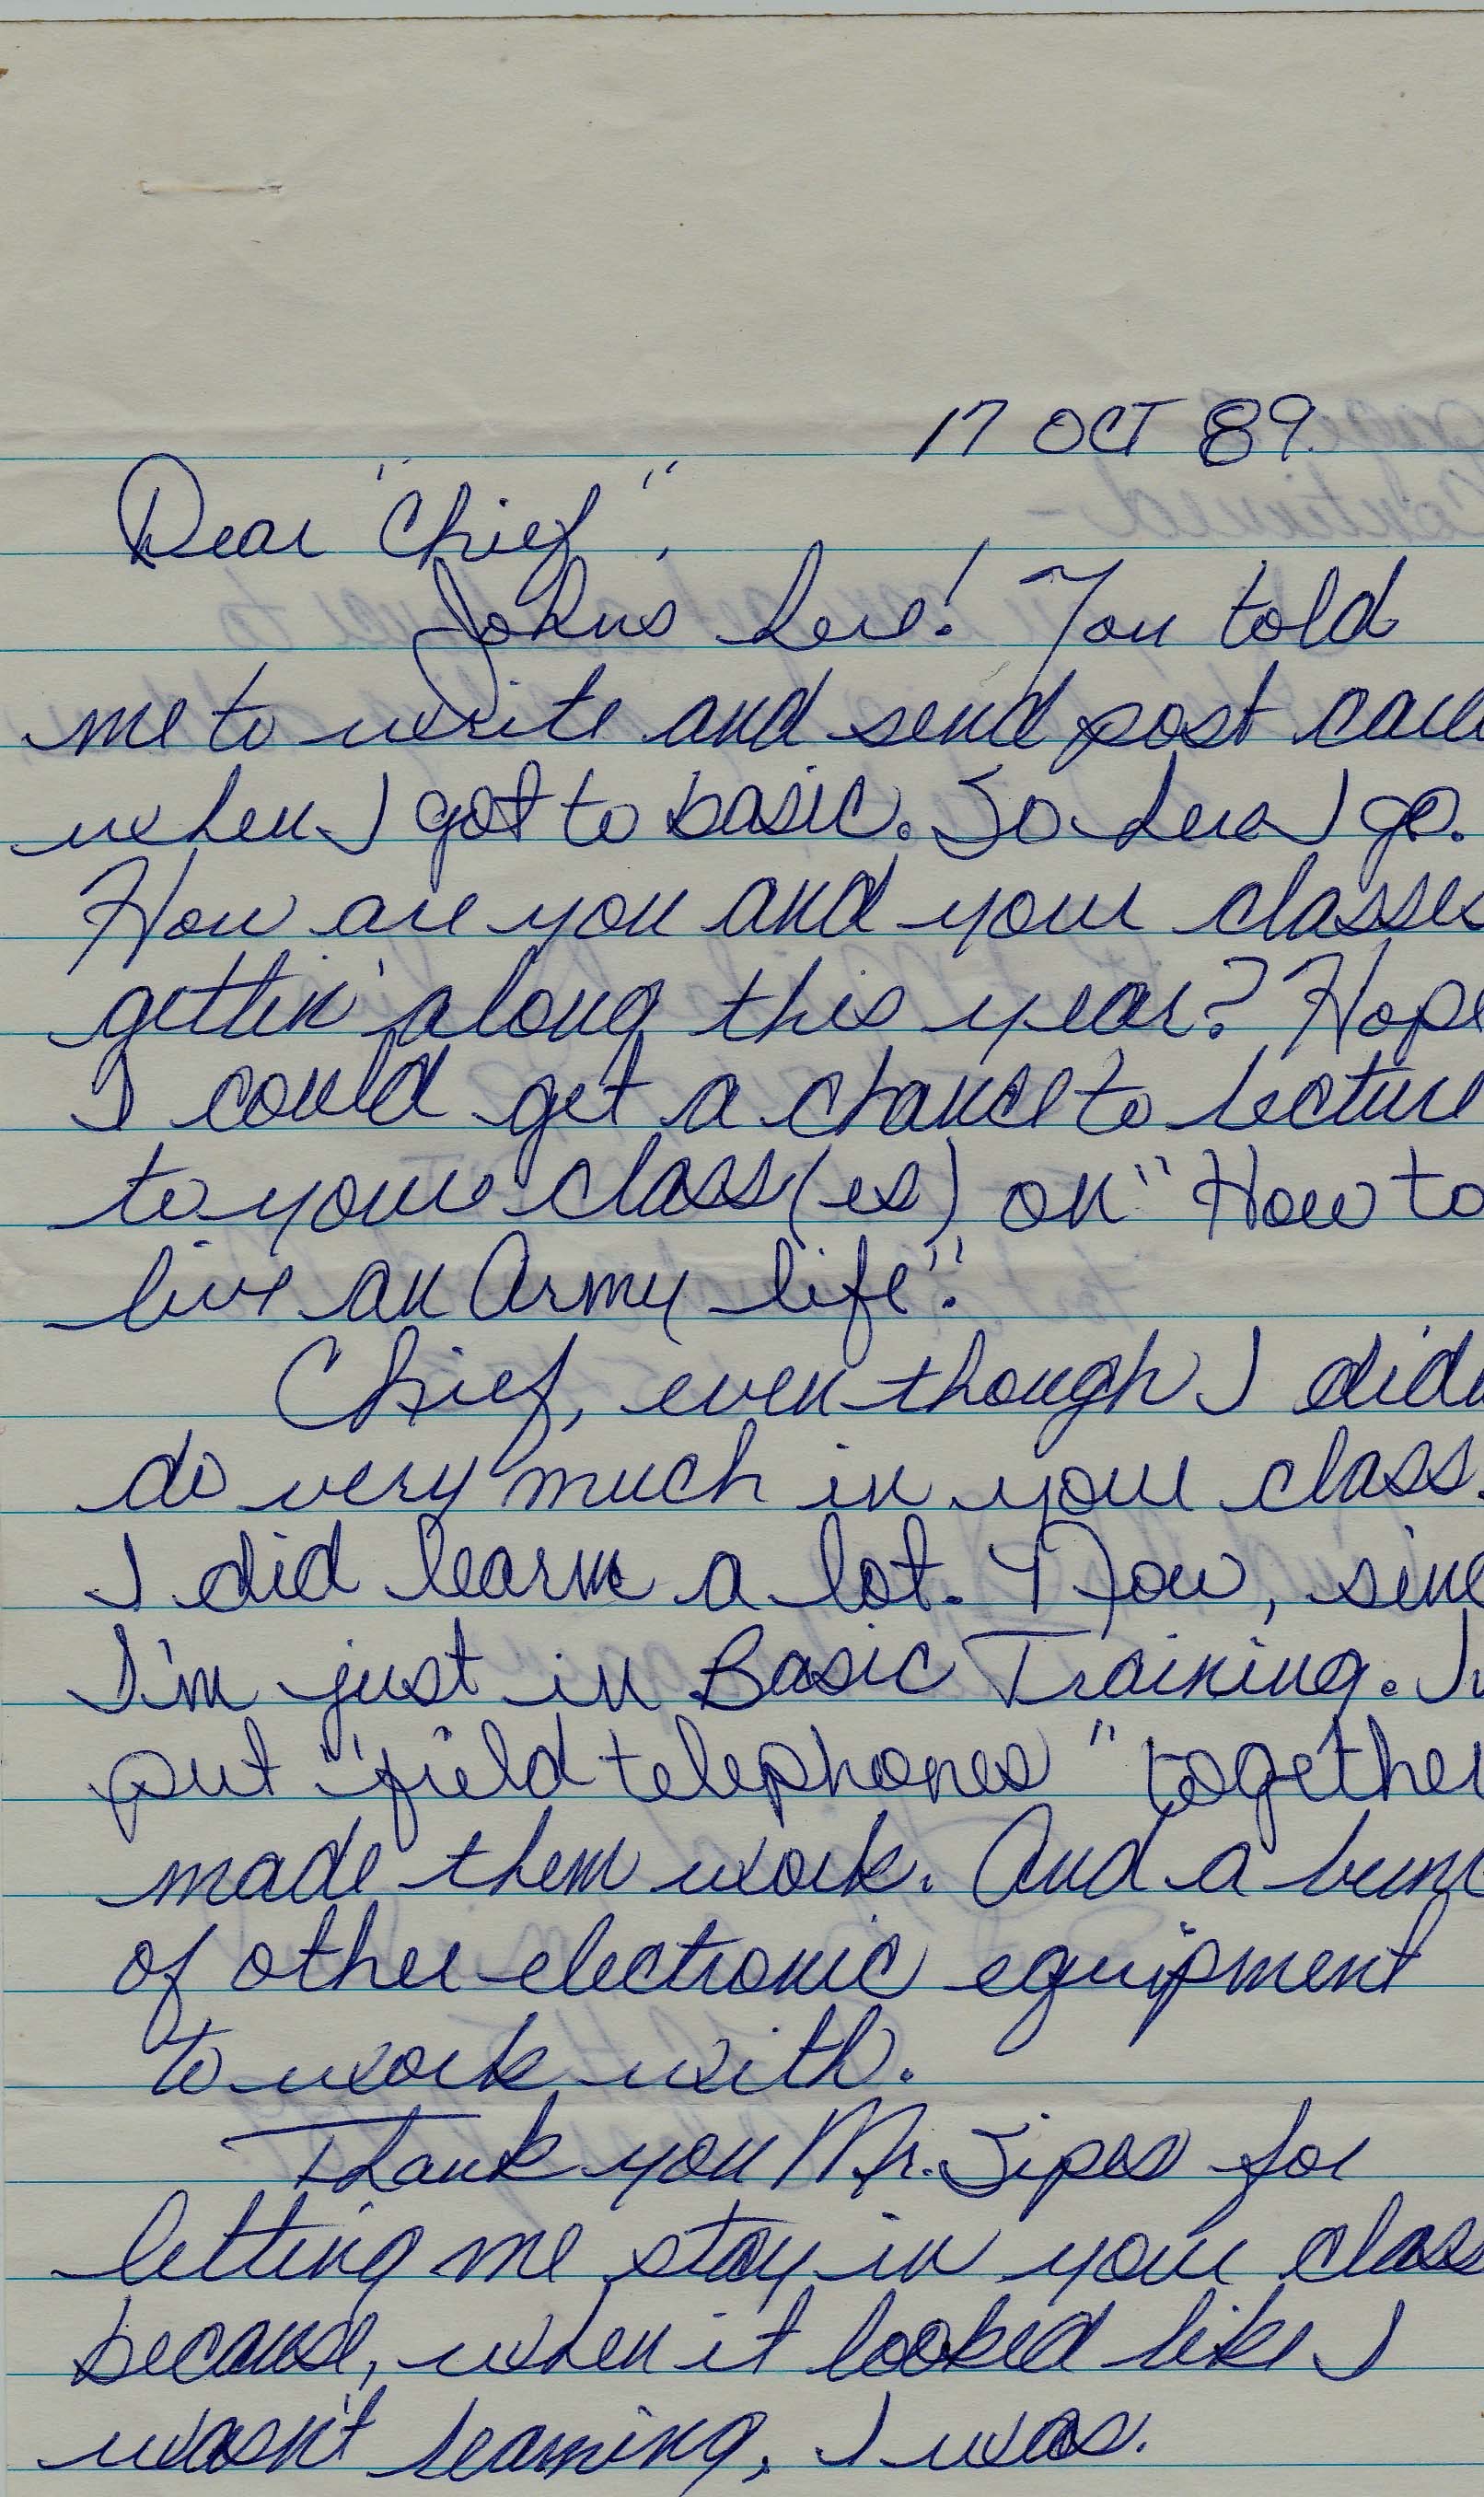 17 OCT 89.
Dear "Chief",
Johns here! You told
me to write and send post
when I got to basic. So here I go.
How are you and your classes
gettin' along this year? Hope
I could get a chance to lecture
to your class(es) on "How to
live an Army life".
Chief, even though I
do very much in your class.
I did learn a lot. Now,
I'm just in Basic Training.
put "field telephones" together
made them work. And a
of other electronic equipment
to work with.
Thank you Mr. Sipes for
letting me stay in your class
because, when it looked like I
wasn't learning, I was.